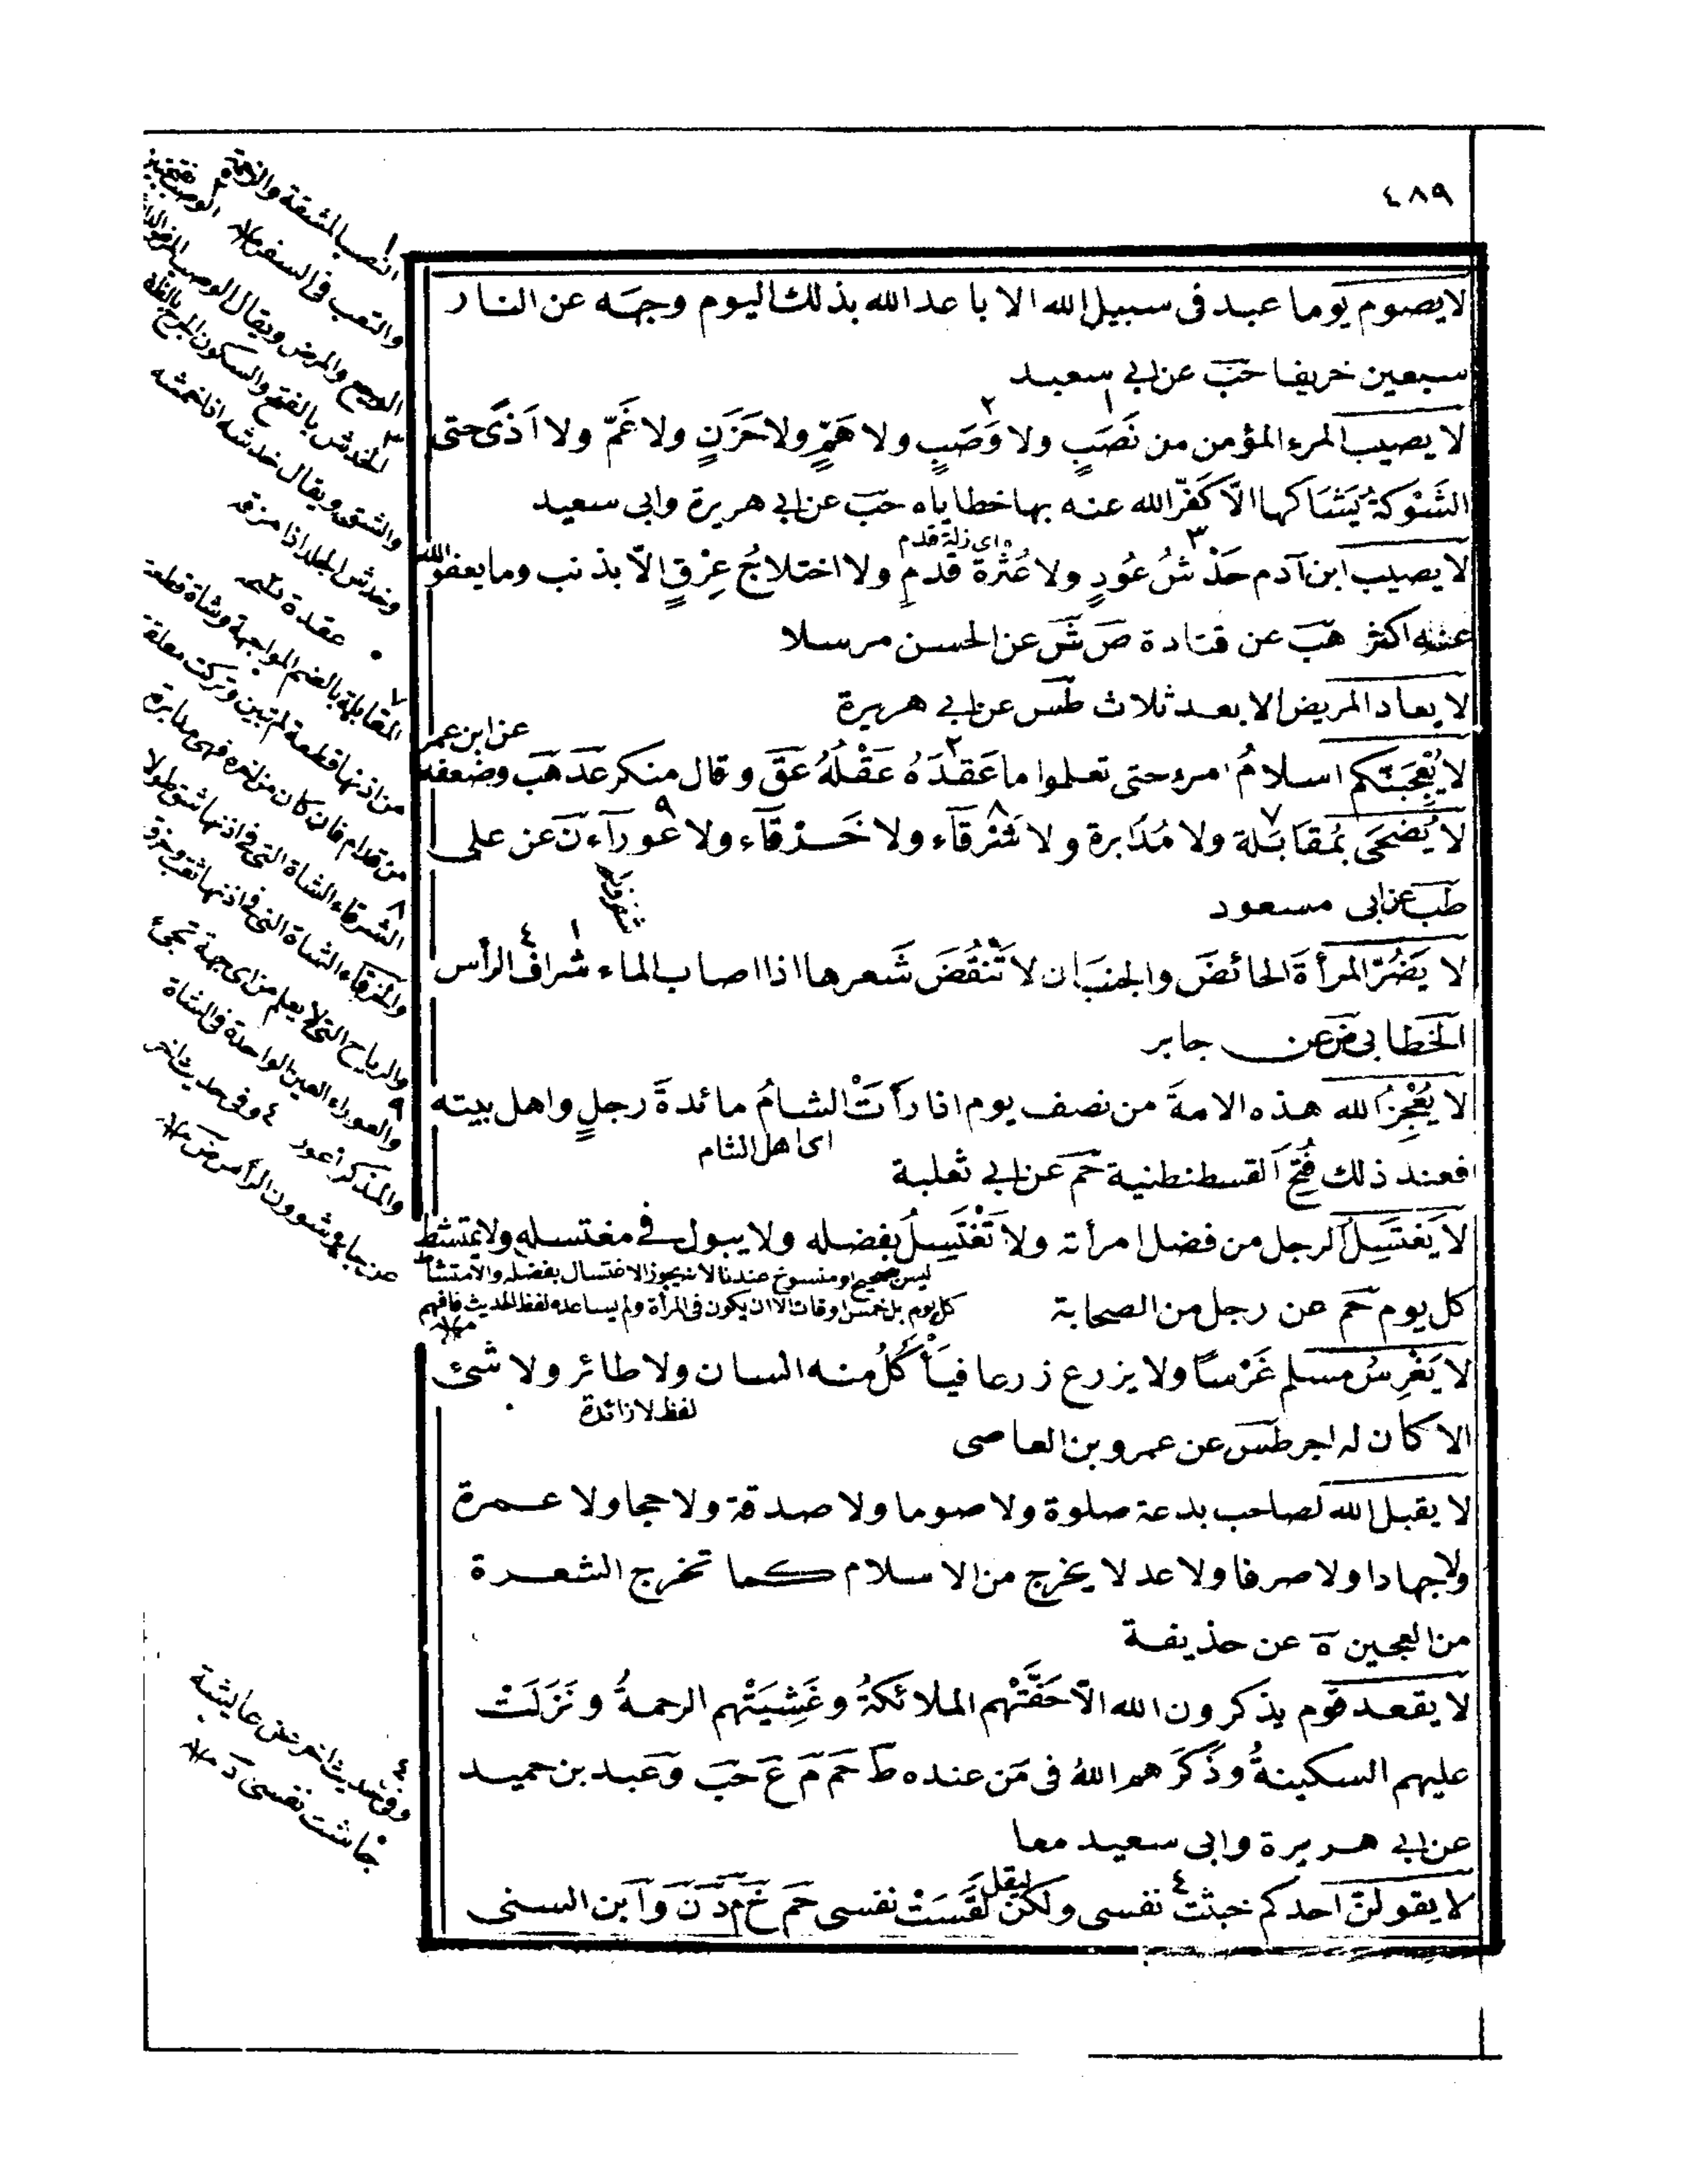 ٤٨٩
لا يصوم يوما عبد فى سبيل الله الا باعد الله بذلك اليوم وجهه عن النار
سبعين خريفا حب عن ابي سعيد
لا يصيب المرء المؤمن من نَصَبٍ ولا وَصَبٍ ولا هَمٍّ ولا حَزَنٍ ولا غَمّ ولا اَذًى حتى
الشَوْكَةُ يُشَاكها الاّ كَفّرَ الله عنه بها خطاياه حب عن ابي هريرة وابى سعيد
اى زلة قدم
لا يصيب ابن آدم خَدْشُ عُودٍ ولا عَثْرَة قَدمٍ ولا اختلاجُ عِرْقٍ الاّ بذنب وما يعفو الله
عنه اكثر هب عن قتادة ص ش عن الحسن مرسلا
لا يعاد المريض الا بعد ثلاث طس عن ابي هريرة
لا يُعْجِبَنّكم اسلامُ امرء حتى تعلموا ما عَقَدَهُ عَقْلُهُ عق وقال منكر عد هب وضعفه عن ابن عمر
لا يُضَحَى بمُقَابَلة ولا مُدَابرة ولا شَرْقَآء ولا خَرْقَآء ولا عَورآء ن عن على
طب عن ابى مسعود
لا يَضُرّ المرأةَ الحائضَ والجنبَ ان لا تَنْقُضَ شَعرها اذا اصاب الماء شراف الرأس
الخطابى ض عن جابر
لا يُعْجِزُ الله هذه الامةَ من نصف يوم اذا رَأَتْ الشامُ مائدةَ رجلٍ واهل بيته
اى اهل الشام
فعند ذلك فُتِحَ القسطنطنية حم عن ابي ثعلبة
لا يَغتَسِلُ الرجل من فضل امرأته ولا تَغْتَسِلُ بفضله ولا يبول في مغتسله ولا يمتشط
كل يوم حم عن رجل من الصحابة
ليس بصحيح او منسوخ عندنا لانه يجوز الاغتسال بفضله والامتشاط
كل يوم بل خمس اوقات الا ان يكون فى المرأة ولم يساعده لفظ الحديث فافهم
لا يَغْرِسُ مسلم غَرْسًا ولا يزرع زرعا فيَأْكُلُ منه انسان ولا طائر ولا شئ
لفظ لا زائدة
الا كان له اجر طس عن عمرو بن العاصى
لا يقبل الله لصاحب بدعة صلوة ولا صوما ولا صدقة ولا حجا ولا عمرة
ولا جهادا ولا صرفا ولا عدلا يخرج من الاسلام كما تخرج الشعرة
من العجين ه عن حذيفة
لا يقعد قوم يذكرون الله الاّ حَفَّتْهم الملائكةُ وغَشِيَتْهم الرحمةُ ونَزَلَتْ
عليهم السكينةُ وذَكَرَهم اللهُ فى مَن عنده ط حم م ع حب وعبد بن حميد
عن ابي هريرة وابى سعيد معا
لا يقولنّ احدكم خبثت نفسى ولكن ليقل لَقَسَتْ نفسى حم خ م د ن وابن السنى
النصب المشقة والزحمة
والتعب فى السفر
الوجع والمرض ويقال الوصب
الخدش بالفتح والسكون
والشق ويقال خدشه اذا خمشه
وخدش الجلد اذا مزقه
المقابلة بالضم المواجهة وشاة قطعة
من اذنها قطعة لم تبين وتركت معلقة
من قدام فان كان من اخره فهى مدابرة
الشرقاء الشاة التى فى اذنها شق طولا
والخرقاء الشاة التى فى اذنها ثقب وخرق
والرياح التى لا يعلم من اى جهة تجئ
والعوراء العين الواحدة فى الشاة
والمذكر أعور ٤ وفى حديث اخر
وفى حديث اخر عن عايشة
جاشت نفسى د